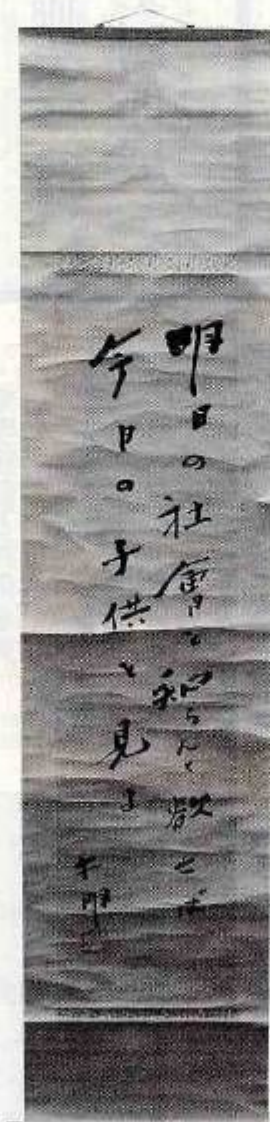 明日の社會を知らんと欲せば
今日の子供を見よ